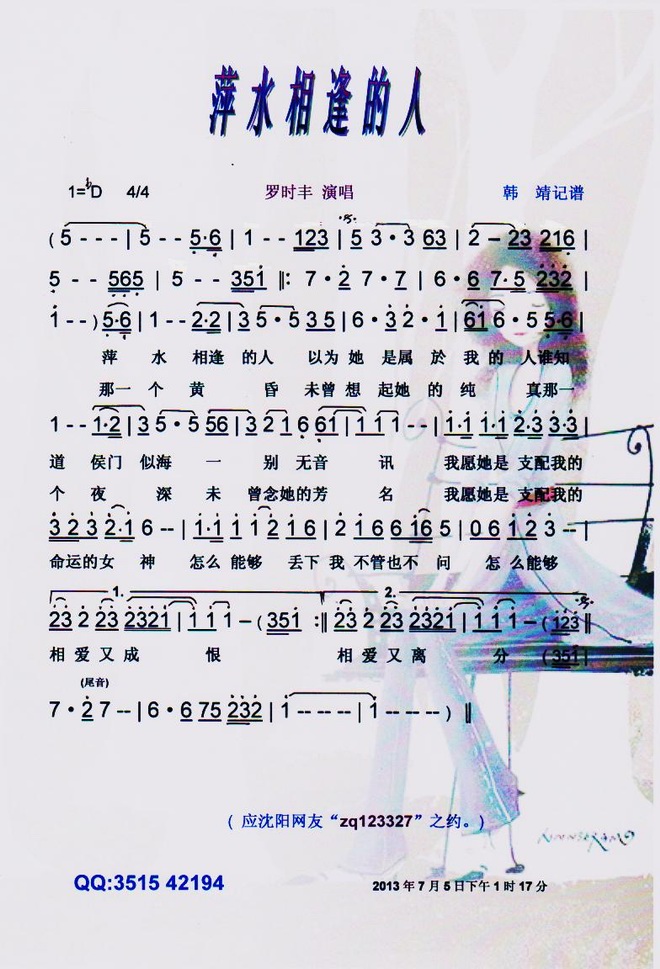 萍水相逢的人
1=♭D 4/4 罗时丰 演唱 韩 靖记谱
( 5 - - - | 5 - - 5·6 | 1 - - 123 | 5 3·3 63 | 2 - 23 216 |
5 - - 565 | 5 - - 351 ‖: 7·2 7·7 | 6·6 7·5 232 |
1 - - ) 5·6 | 1 - - 2·2 | 3 5·5 3 5 | 6·3 2·1 | 61 6·5 5·6 |
萍 水 相逢 的人 以为 她 是属 於 我 的 人谁知
那一 个 黄 昏 未曾 想 起她 的 纯 真那一
1 - - 1·2 | 3 5·5 56 | 3 2 1 6 61 | 1 1 1 - - | 1·1 1·1 2·3 3·3 |
道 侯门 似海 一 别 无音 讯 我愿她是 支配我的
个 夜 深 未 曾念她的芳 名 我愿她是 支配我的
3 2 3 2·1 6 - - | 1·1 1 1 2 1 6 | 2 1 6 6 16 5 | 0 6 1 2 3 - - |
命运的女 神 怎么 能够 丢下 我 不管也不 问 怎 么能够
1. 2.
23 2 23 2321 | 1 1 1 - ( 351 :‖ 23 2 23 2321 | 1 1 1 - ( 123 ‖
相 爱 又 成 恨 相 爱 又 离 分 ( 351 |
(尾音)
7·2 7 - - | 6·6 75 232 | 1 - - - - | 1 - - - - ) ‖
( 应沈阳网友“zq123327”之约。)
QQ:3515 42194 2013 年 7 月 5 日下午 1 时 17 分